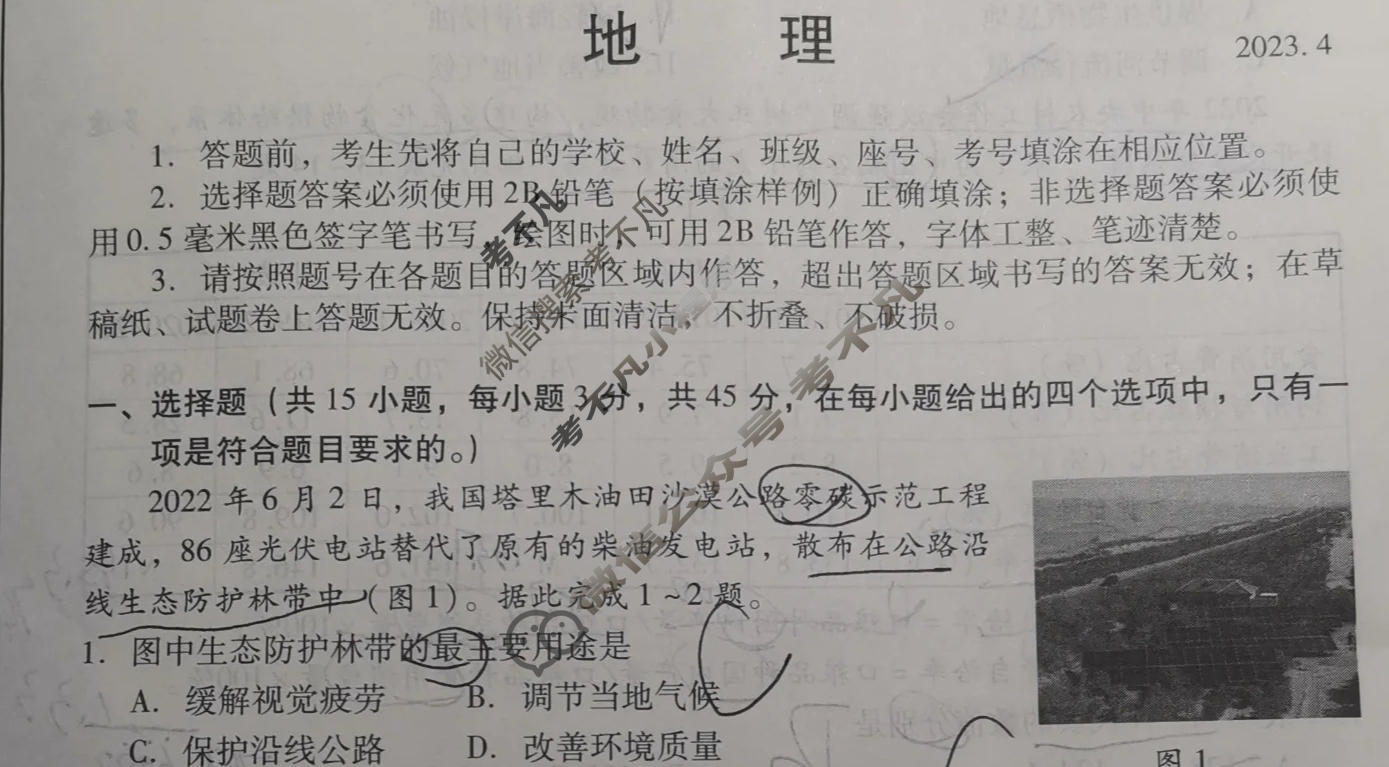 地 理
2023.4
1. 答题前，考生先将自己的学校、姓名、班级、座号、考号填涂在相应位置。
2. 选择题答案必须使用2B铅笔（按填涂样例）正确填涂；非选择题答案必须使
用0.5毫米黑色签字笔书写，绘图时，可用2B铅笔作答，字体工整、笔迹清楚。
3. 请按照题号在各题目的答题区域内作答，超出答题区域书写的答案无效；在草
稿纸、试题卷上答题无效。保持卡面清洁，不折叠、不破损。
一、选择题（共15小题，每小题3分，共45分，在每小题给出的四个选项中，只有一
项是符合题目要求的。）
2022年6月2日，我国塔里木油田沙漠公路零碳示范工程
建成，86座光伏电站替代了原有的柴油发电站，散布在公路沿
线生态防护林带中（图1）。据此完成1~2题。
1. 图中生态防护林带的最主要用途是
A. 缓解视觉疲劳 B. 调节当地气候
C. 保护沿线公路 D. 改善环境质量
图1
考不凡
微信搜索考不凡
考不凡小
微信公众号考不凡